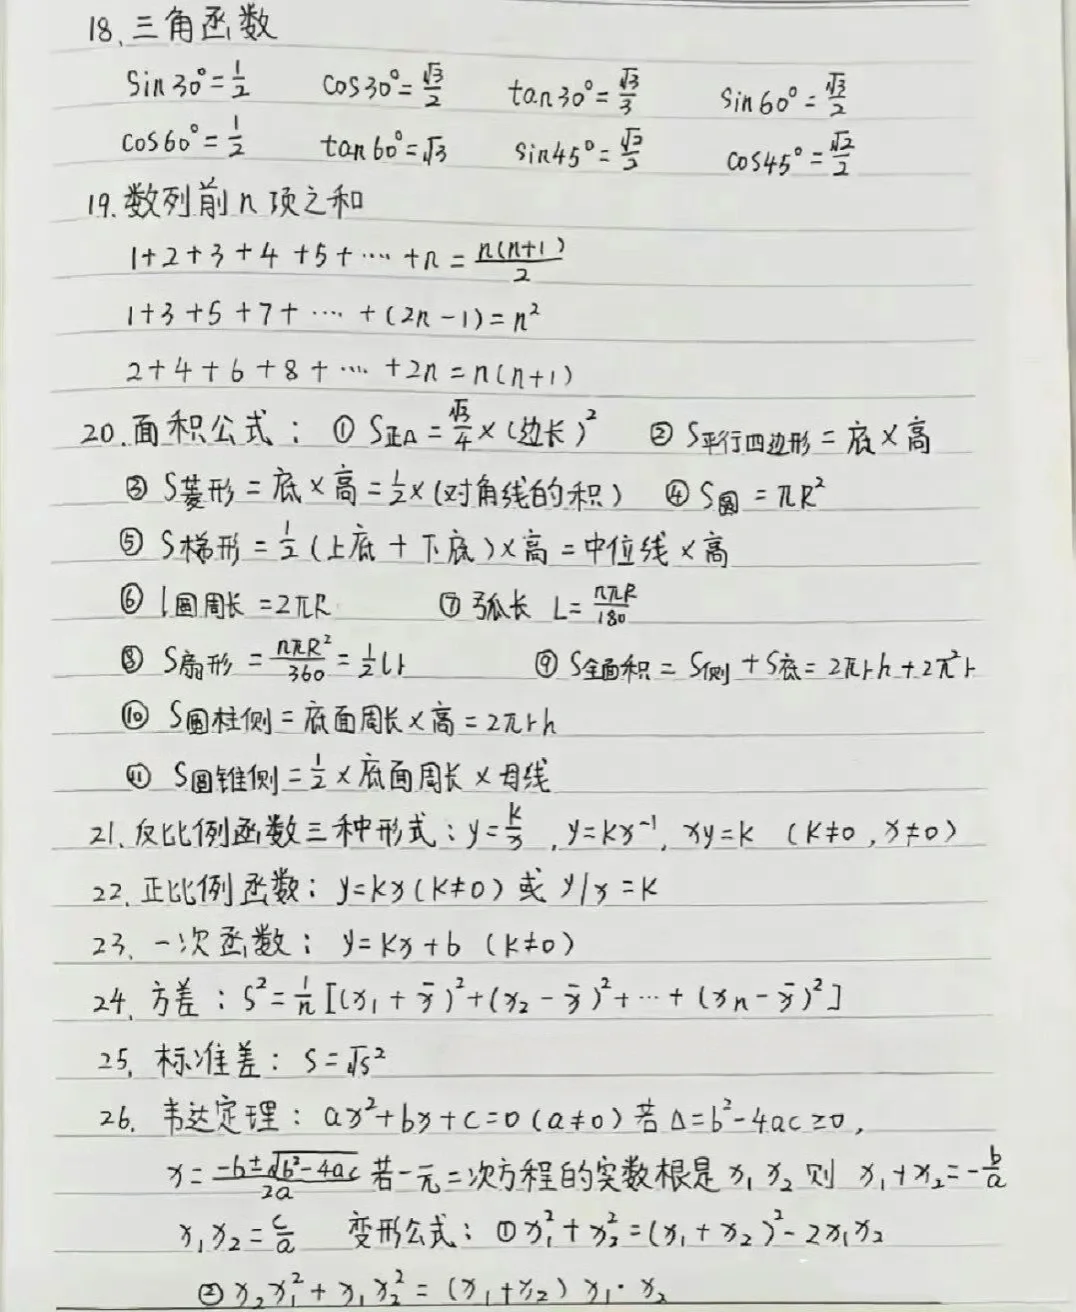 18、三角函数
sin30°=1/2 cos30°=√3/2 tan30°=√3/3 sin60°=√3/2
cos60°=1/2 tan60°=√3 sin45°=√2/2 cos45°=√2/2
19.数列前n项之和
1+2+3+4+5+…+n=n(n+1)/2
1+3+5+7+…+(2n-1)=n²
2+4+6+8+…+2n=n(n+1)
20.面积公式：① S正△=√3/4×(边长)² ② S平行四边形=底×高
③ S菱形=底×高=1/2×(对角线的积) ④ S圆=πR²
⑤ S梯形=1/2(上底+下底)×高=中位线×高
⑥ l圆周长=2πR ⑦ 弧长 L=nπR/180
⑧ S扇形=nπR²/360=1/2lr ⑨ S全面积=S侧+S底=2πrh+2π²r
⑩ S圆柱侧=底面周长×高=2πrh
⑪ S圆锥侧=1/2×底面周长×母线
21.反比例函数三种形式：y=k/x,y=kx⁻¹,xy=k (k≠0,x≠0)
22.正比例函数：y=kx(k≠0)或y/x=k
23、一次函数：y=kx+b (k≠0)
24、方差：S²=1/n[(x₁+x̄)²+(x₂-x̄)²+…+(xn-x̄)²]
25,标准差：S=√S²
26、韦达定理：ax²+bx+c=0(a≠0)若Δ=b²-4ac≥0,
x=(-b±√b²-4ac)/2a 若一元二次方程的实数根是x₁ x₂则 x₁+x₂=-b/a
x₁x₂=c/a 变形公式：①x₁²+x₂²=(x₁+x₂)²-2x₁x₂
②x₂x₁²+x₁x₂²=(x₁+x₂)x₁·x₂